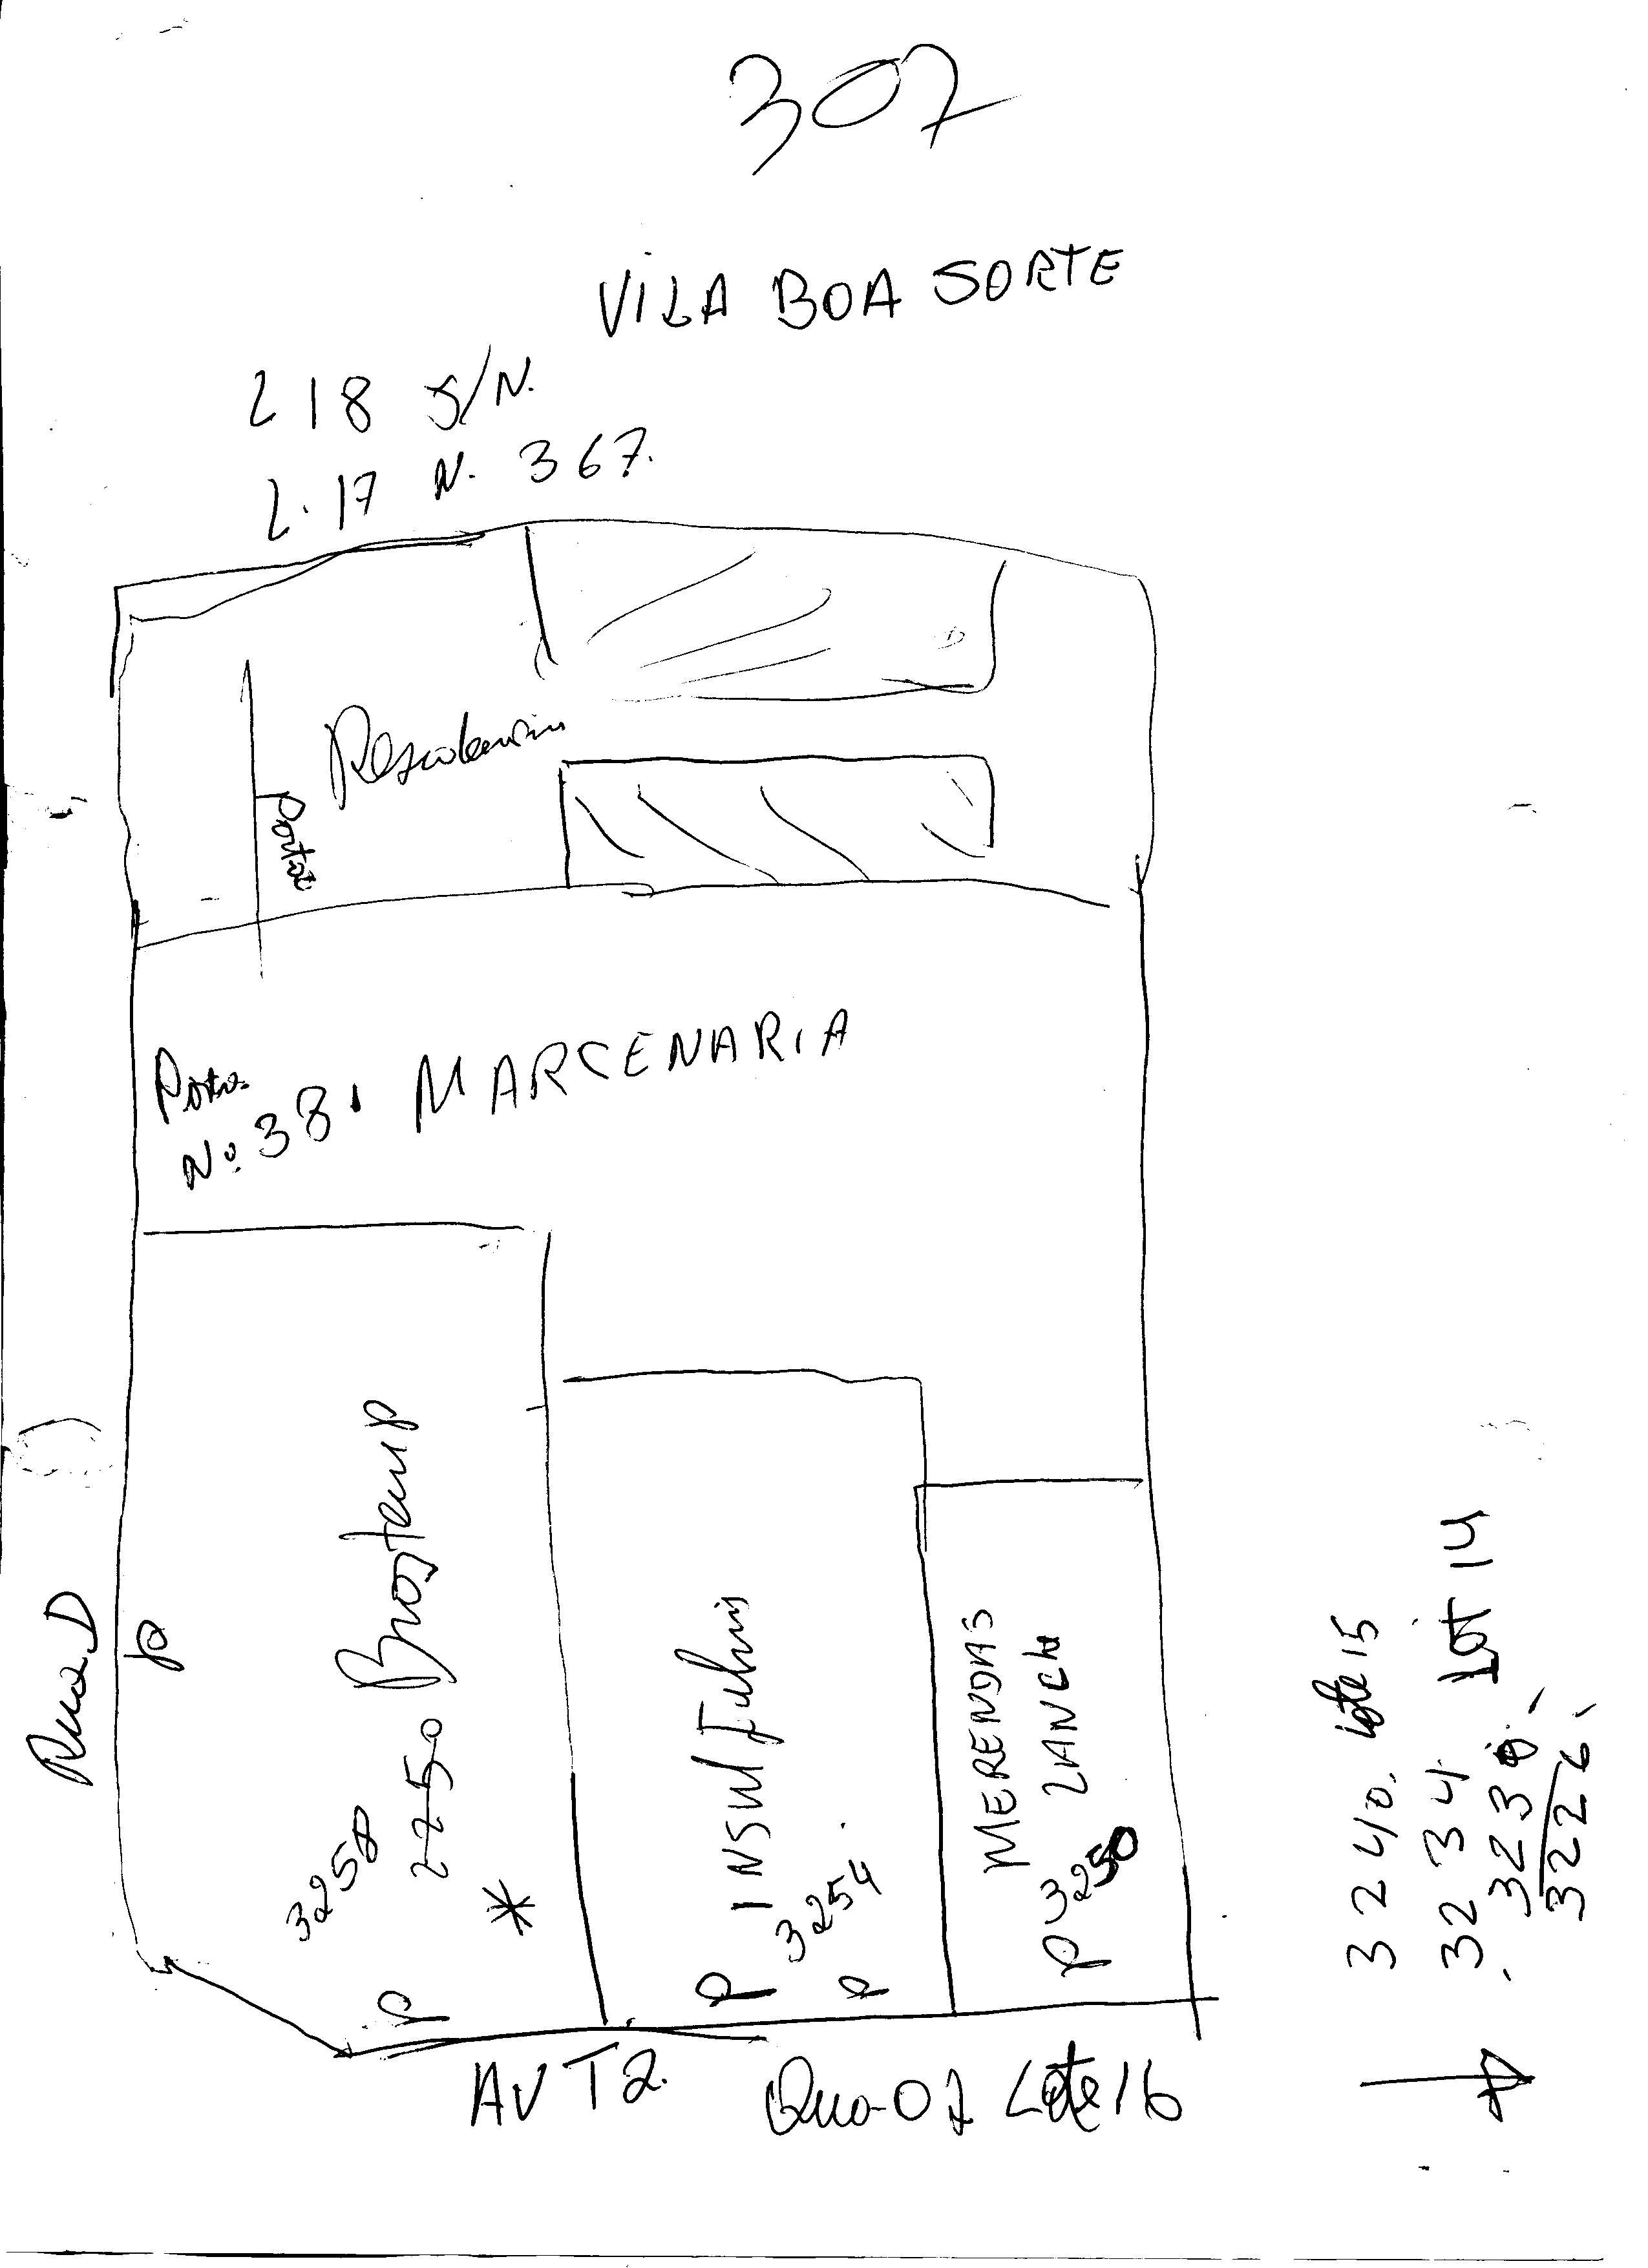 307
VILA BOA SORTE
L 18 S/N.
L. 17 N. 367.
Portão
Nº 381 MARCENARIA
Rua D
P
Brastemp
3258
2250
*
P
INSUL
3254
P
P
MERENDAS
LANCH
P 3250
3240. lote 15
3234 Lot 14
3230
3226
AV T2. Qua-07 Lote 16